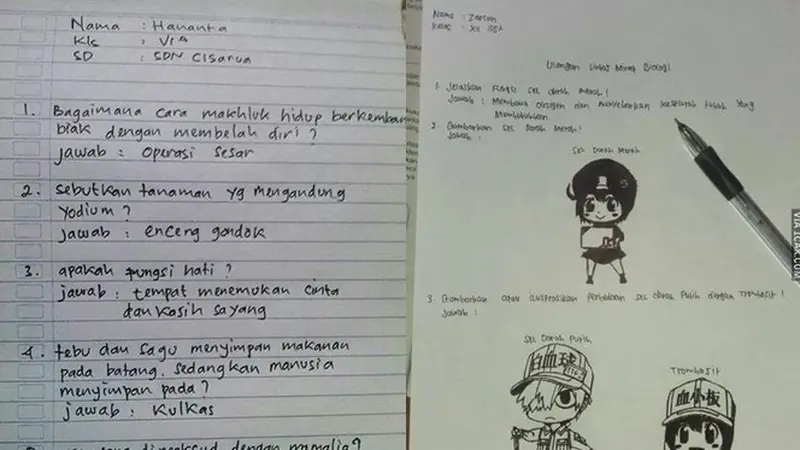 Nama : Hananta
Kls : VI A
SD : SDN Cisarua
1. Bagaimana cara makhluk hidup berkemban
biak dengan membelah diri ?
jawab : Operasi Sesar
2. Sebutkan tanaman yg mengandung
Yodium ?
jawab : enceng gondok
3. apakah fungsi hati ?
jawab : tempat menemukan cinta
dan kasih sayang
4. tebu dan sagu menyimpan makanan
pada batang. sedangkan manusia
menyimpan pada ?
jawab : Kulkas
dimaksud dengan mamalia ?
Nama :
Kelas : XII
Ulangan Lintas Minat Biologi
1. Jelaskan fungsi sel darah merah !
Jawab : Membawa oksigen dan menyebarkan keseluruh tubuh yang
Membutuhkan
2. Gambarkan sel Darah Merah !
Jawab :
Sel Darah Merah
3. Gambarkan atau ilustrasikan perbedaan sel darah Putih dengan Trombosit !
Jawab :
Sel Darah Putih
白血球
Trombosit
血小板
VIA 1CAK.COM